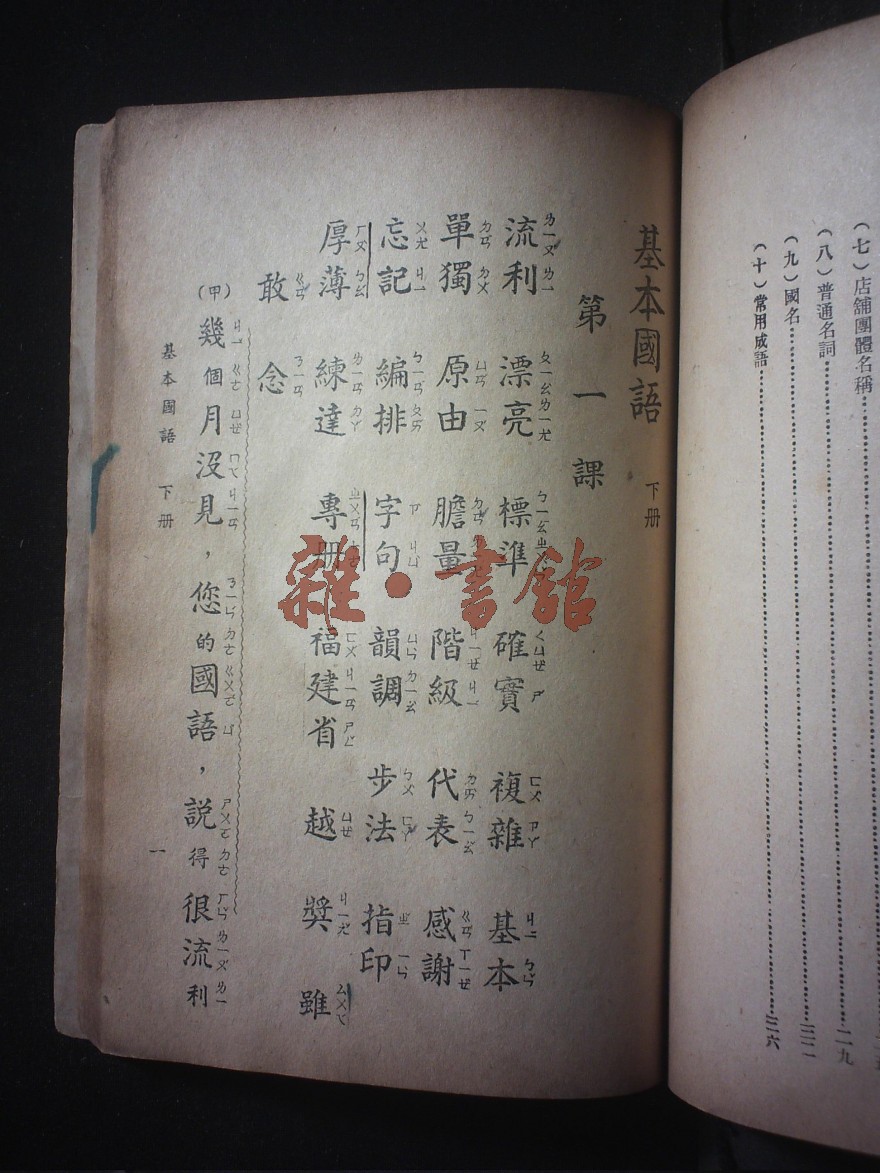 (七)店舖團體名稱
(八)普通名詞……二九
(九)國名……三二
(十)常用成語……三六
基本國語 下册
第一課
流利 漂亮 標準 確實 複雜 基本
單獨 原由 膽量 階級 代表 感謝
忘記 編排 字句 韻調 步法 指印
厚薄 練達 專册 福建省 越 獎 雖
敢 念
(甲)幾個月沒見,您的國語,說得很流利
基本國語 下册 一
雜·書館